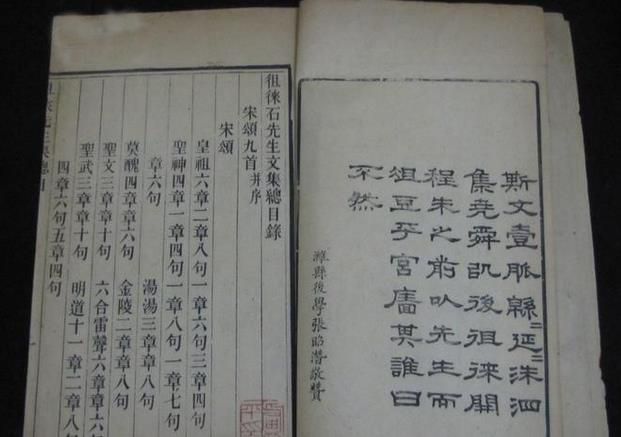 斯文壹脈緜二延二洙泗
集堯舜後徂徠開
程朱之前以先生而
俎豆乎宮廧其誰曰
不然
濰縣後學張昭潛敬贊
徂徠石先生文集總目錄
宋頌九首并序
宋頌
皇祖六章二章八句一章六句三章四句
聖神四章一章四句一章八句一章七句
章六句 湯湯三章章八句
莫醜四章章六句 金陵二章章八句
聖文三章章十句 六合雷聲六章章六
聖武三章章十句 明道十一章二章八
四章六句五章四句